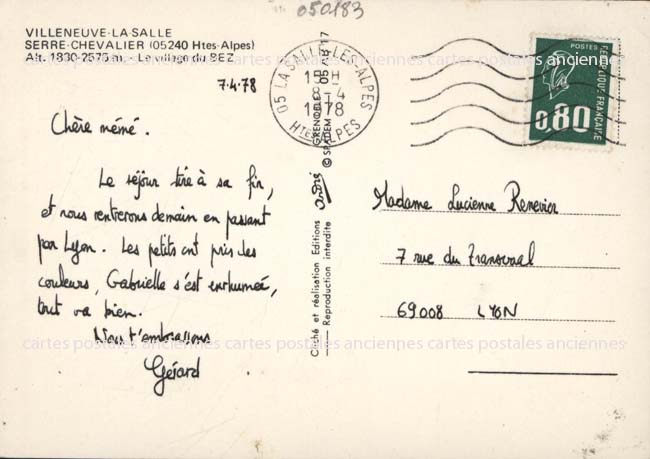 050183
VILLENEUVE-LA-SALLE
SERRE-CHEVALIER (05240 Htes-Alpes)
Alt. 1830-2575 m. - Le village du BEZ
7.4.78
Chère mémé.
Le séjour tire à sa fin,
et nous rentrerons demain en passant
par Lyon. Les petits ont pris des
couleurs, Gabrielle s'est enrhumée,
tout va bien.
Nous t'embrassons
Gérard
Cliché et réalisation Editions André © SPADEM
Reproduction interdite
GRENOBLE
05 LA SALLE LES ALPES
8-4
1978
Htes ALPES
POSTES
REPUBLIQUE FRANÇAISE
0,80
Madame Lucienne Renevier
7 rue du Transvaal
69008 LYON
cartes postales anciennes cartes postales anciennes cartes postales anciennes